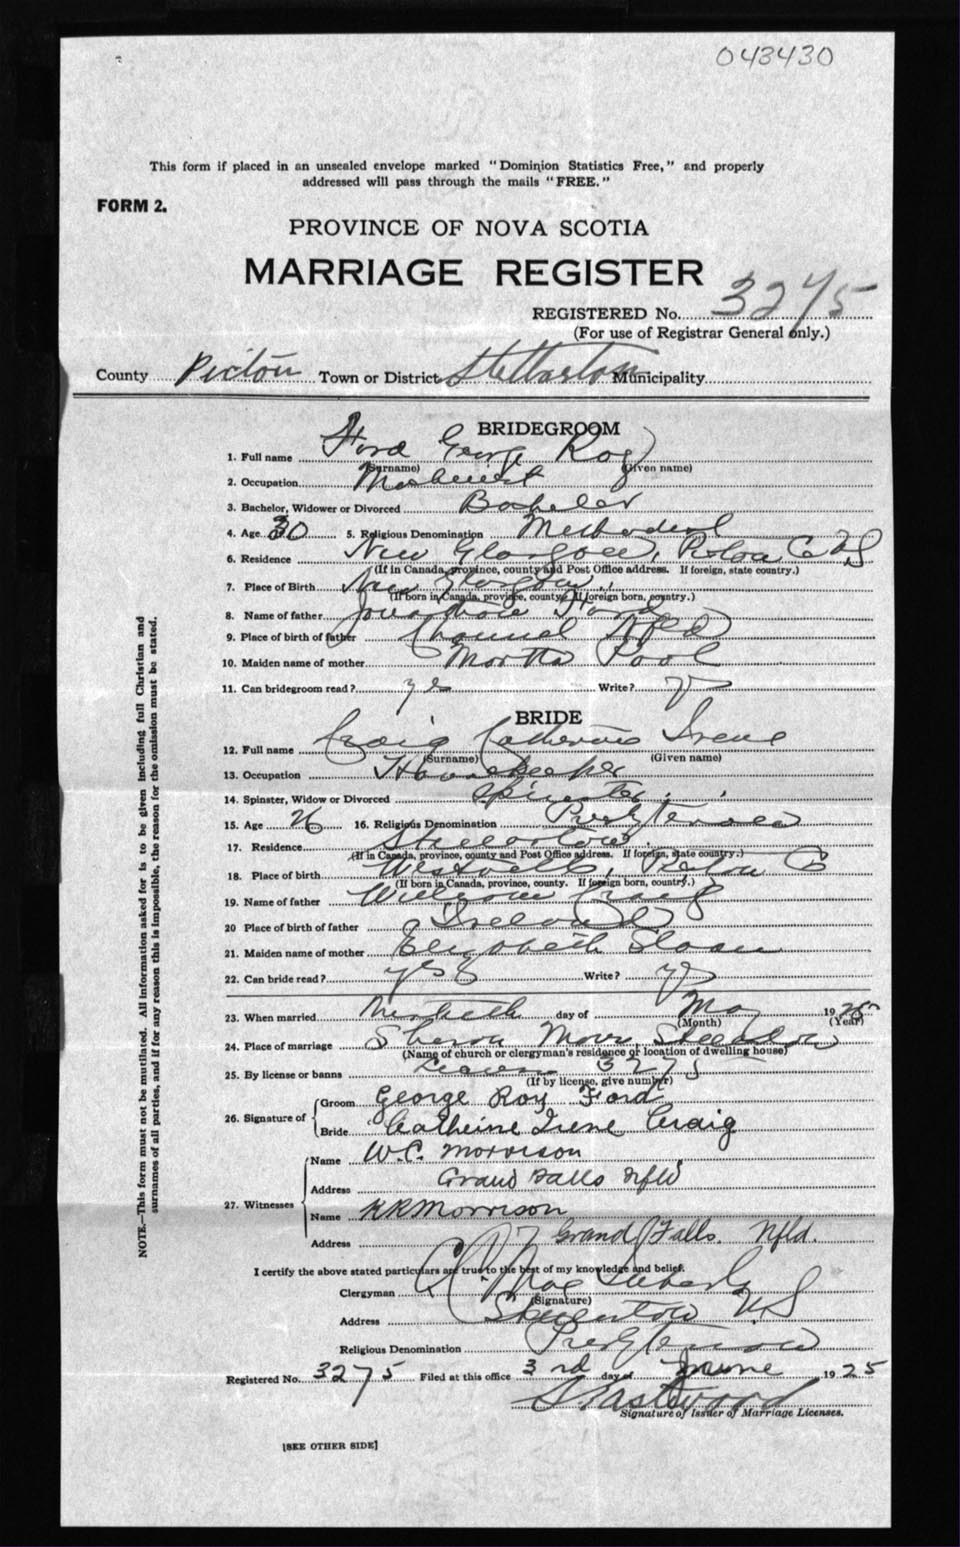 043430
This form if placed in an unsealed envelope marked "Dominion Statistics Free," and properly
addressed will pass through the mails "FREE."
FORM 2.
PROVINCE OF NOVA SCOTIA
MARRIAGE REGISTER
REGISTERED No. 3275
(For use of Registrar General only.)
County Pictou Town or District Stellarton Municipality
BRIDEGROOM
1. Full name Ford George Roy
(Surname) (Given name)
2. Occupation Machinist
3. Bachelor, Widower or Divorced Bachelor
4. Age 30 5. Religious Denomination Methodist
6. Residence New Glasgow, Pictou Co NS
(If in Canada, province, county and Post Office address. If foreign, state country.)
7. Place of Birth New Glasgow
(If born in Canada, province, county. If foreign born, country.)
8. Name of father Jonathan Ford
9. Place of birth of father Channel Nfld
10. Maiden name of mother Martha Pool
11. Can bridegroom read? yes Write? yes
BRIDE
12. Full name Craig Catherine Irene
(Surname) (Given name)
13. Occupation Housekeeper
14. Spinster, Widow or Divorced Spinster
15. Age 26 16. Religious Denomination Presbyterian
17. Residence Stellarton
(If in Canada, province, county and Post Office address. If foreign, state country.)
18. Place of birth Westville, Pictou Co
(If born in Canada, province, county. If foreign born, country.)
19. Name of father William Craig
20 Place of birth of father Ireland
21. Maiden name of mother Elizabeth Sloan
22. Can bride read? yes Write? yes
23. When married day of May 1925
(Month) (Year)
24. Place of marriage Sharon Manse Stellarton
(Name of church or clergyman's residence or location of dwelling house)
25. By license or banns License 3275
(If by license, give number)
26. Signature of Groom George Roy Ford
Bride Catheine Irene Craig
27. Witnesses Name W.C. Morrison
Address Grand Falls Nfld
Name K R Morrison
Address Grand Falls. Nfld.
I certify the above stated particulars are true to the best of my knowledge and belief.
Clergyman
(Signature)
Address Stellarton N.S
Religious Denomination Presbyterian
Registered No. 3275 Filed at this office 3rd day of June 1925
Signature of Issuer of Marriage Licenses.
[SEE OTHER SIDE]
NOTE.—This form must not be mutilated. All information asked for is to be given including full Christian and
surnames of all parties, and if for any reason this is impossible, the reason for the omission must be stated.